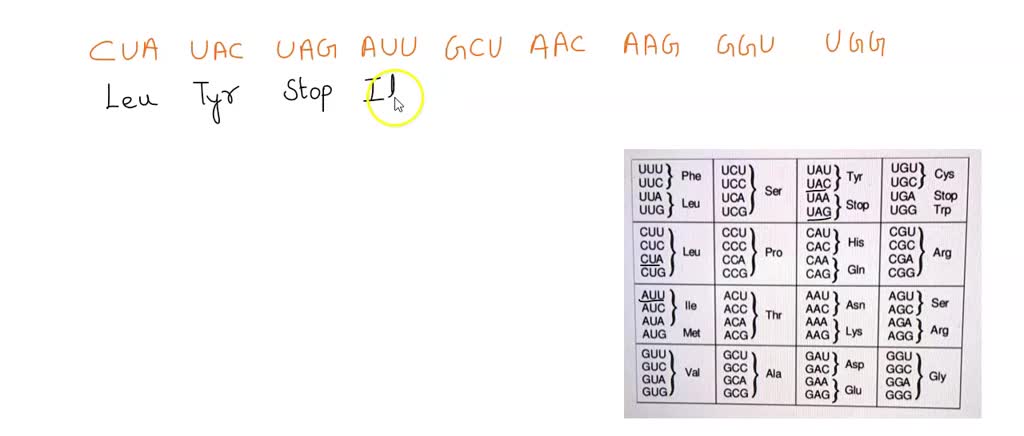 CUA UAC UAG AUU GCU AAC AAG GGU UGG
Leu Tyr Stop Il
UUU UUC Phe UUA UUG Leu
UCU UCC UCA UCG Ser
UAU UAC Tyr UAA UAG Stop
UGU UGC Cys UGA Stop UGG Trp
CUU CUC CUA CUG Leu
CCU CCC CCA CCG Pro
CAU CAC His CAA CAG Gln
CGU CGC CGA CGG Arg
AUU AUC AUA Ile AUG Met
ACU ACC ACA ACG Thr
AAU AAC Asn AAA AAG Lys
AGU AGC Ser AGA AGG Arg
GUU GUC GUA GUG Val
GCU GCC GCA GCG Ala
GAU GAC Asp GAA GAG Glu
GGU GGC GGA GGG Gly